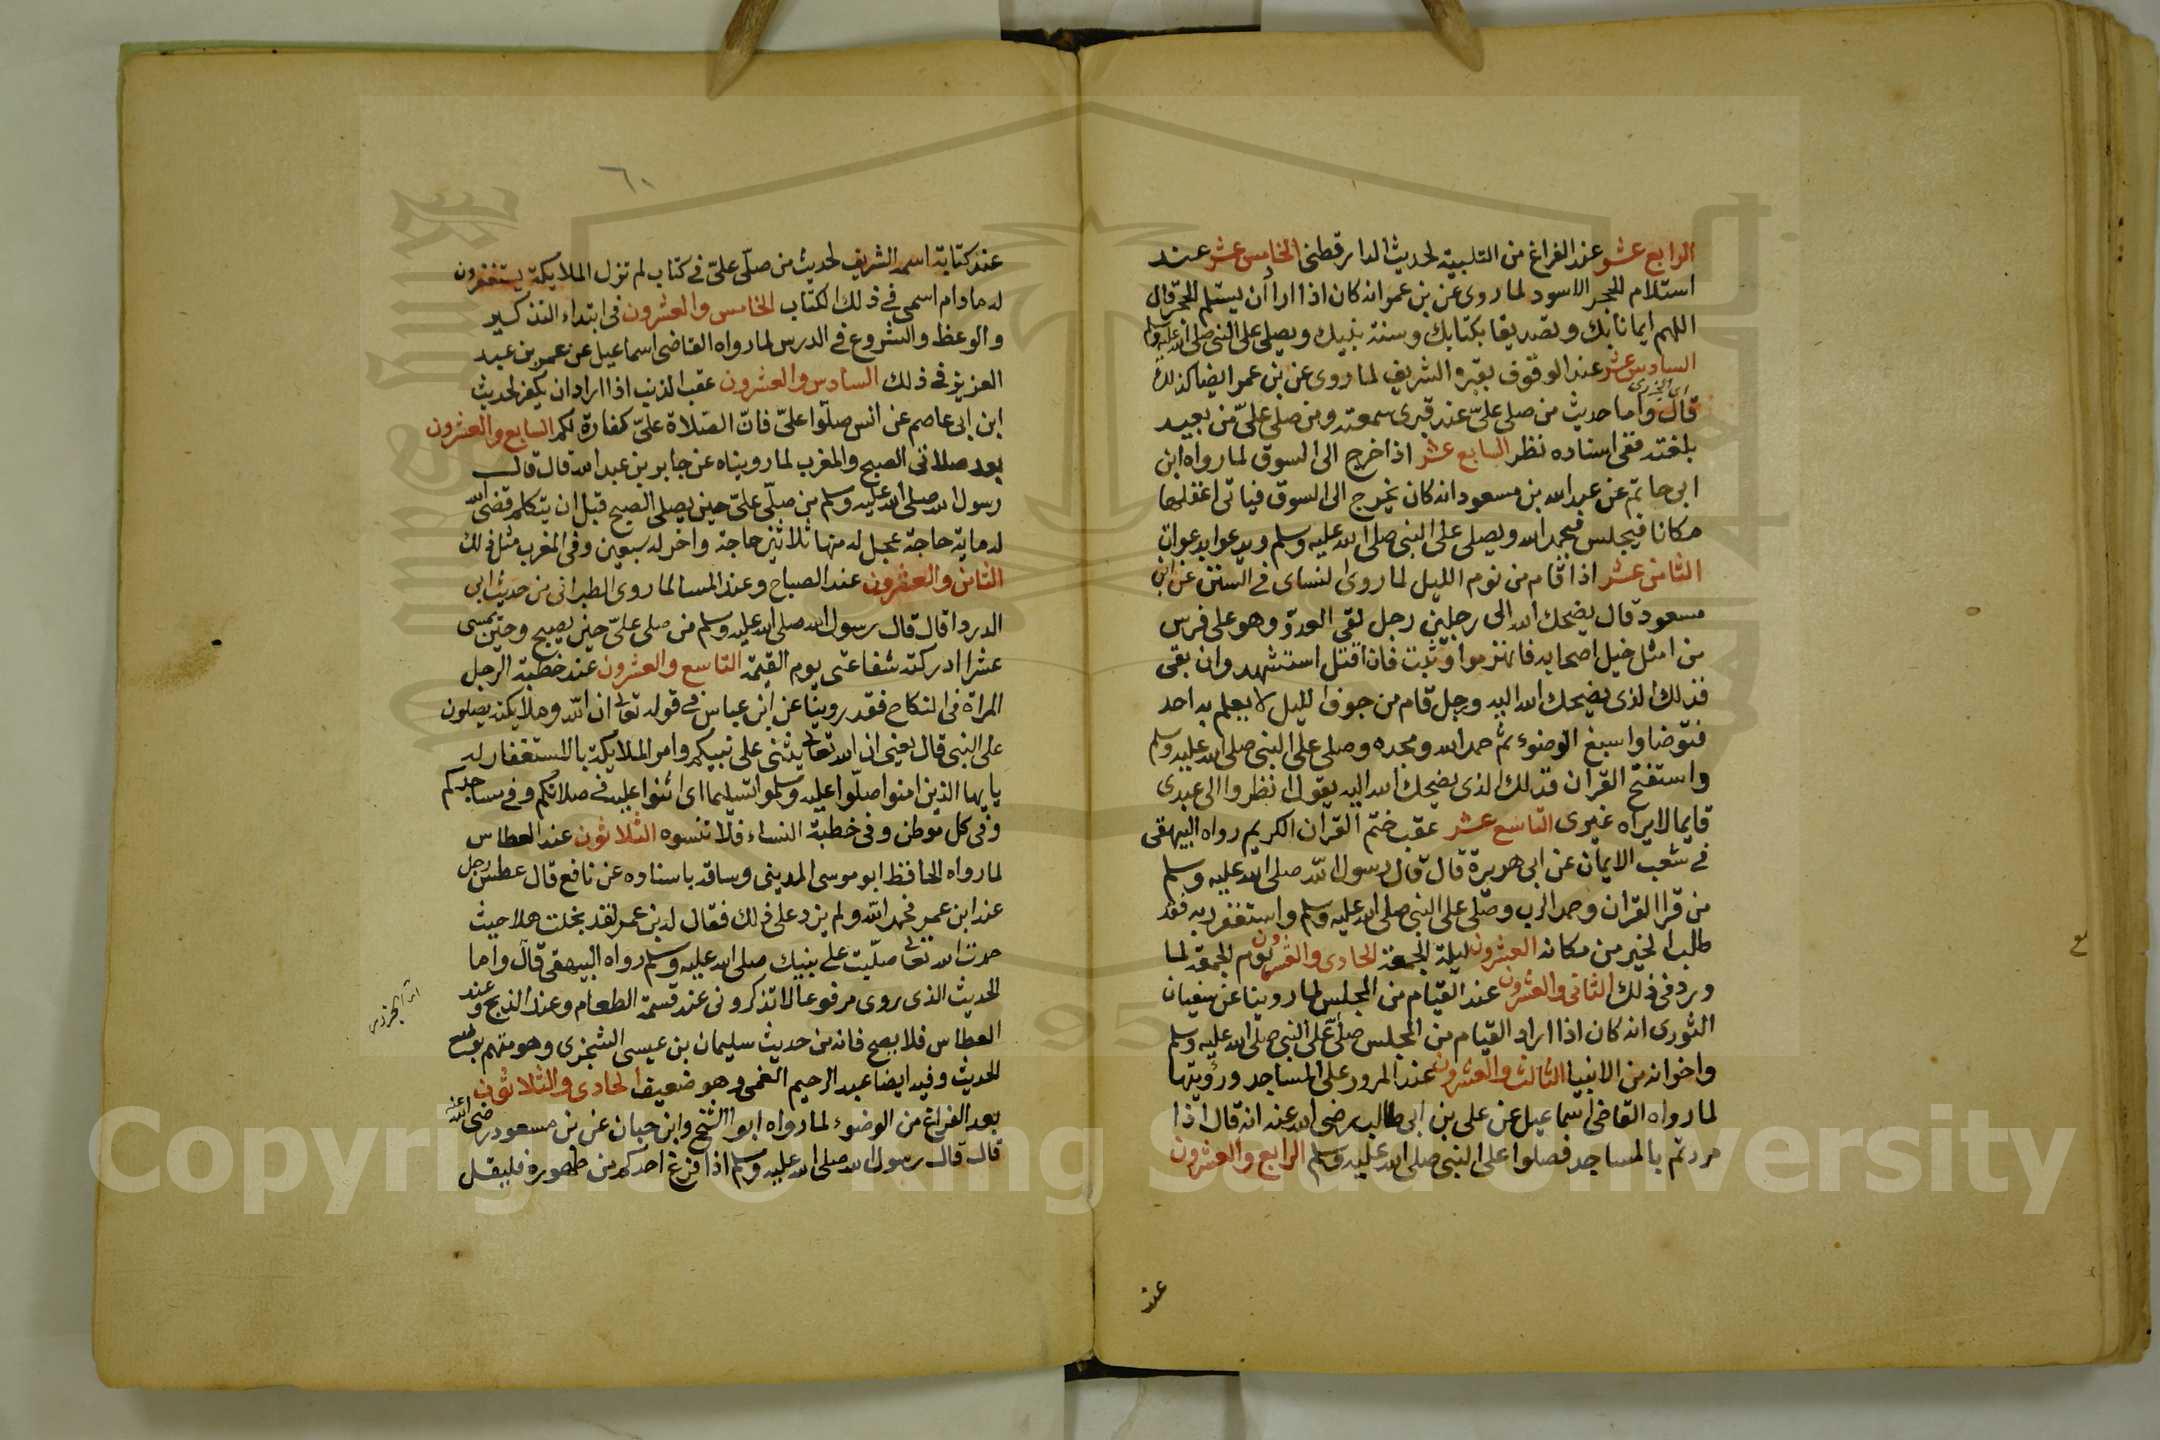 الرابع عشر عند الفراغ من التلبية لحديث الدارقطنى الخامس عشر عند
استلام الحجر الاسود لما روى عن بن عمر انه كان اذا اراد أن يستلم الحجر قال
اللهم ايمانا بك وتصديقا بكتابك وسنة نبيك ويصلى على النبى صلى الله عليه وسلم
السادس عشر عند الوقوف بقبره الشريف لما روى عن بن عمر ايضا كذلك
اى الجزرى
قال واما حديث من صلى علىّ عند قبرى سمعته ومن صلى علىّ من بعيد
بلغته ففى اسناده نظر السابع عشر اذا خرج الى السوق لما رواه ابن
ابى حاتم عن عبد الله بن مسعود انه كان يخرج الى السوق فياتى اغفلها
مكانا فيجلس فيحمد الله ويصلى على النبى صلى الله عليه وسلم ويدعوا بدعوات
الثامن عشر اذا قام من نوم الليل لما روى النساى فى السنن عن ابن
مسعود قال يضحك الله الى رجلين رجل لقى العدوّ وهو على فرس
من امثل خيل اصحابه فانهزموا وثبت فان قتل استشهد وان بقى
فذلك الذى يضحك الله اليه ورجل قام من جوف الليل لا يعلم به احد
فتوضا واسبغ الوضوء ثم حمد الله ومجده وصلى على النبى صلى الله عليه وسلم
واستفتح القران فذلك الذى يضحك الله اليه يقول انظروا الى عبدى
قايما لا يراه غيرى التاسع عشر عقب ختم القران الكريم رواه البيهقى
فى شعب الايمان عن ابى هريرة قال قال رسول الله صلى الله عليه وسلم
من قرا القران وحمد الرب وصلى على النبى صلى الله عليه وسلم واستغفر ربه فقد
طلب الخير من مكانه العشرون ليلة الجمعة الحادى والعشرون يوم الجمعة لما
ورد فى ذلك الثانى والعشرون عند القيام من المجلس لما روينا عن سفيان
الثورى انه كان اذا اراد القيام من المجلس صلى على النبى صلى الله عليه وسلم
واخوانه من الانبيا الثالث والعشرون عند المرور على المساجد ورؤيتها
لما رواه القاضى اسماعيل عن على بن ابى طالب رضى الله عنه انه قال اذا
مررتم بالمساجد فصلوا على النبى صلى الله عليه وسلم الرابع والعشرون
عند
٦٠
عند كتابة اسمه الشريف لحديث من صلّى علىّ فى كتاب لم تزل الملايكة يستغفرون
له ما دام اسمى فى ذلك الكتاب الخامس والعشرون فى ابتداء التذكير
والوعظ والشروع فى الدرس لما رواه القاضى اسماعيل عن عمر بن عبد
العزيز فى ذلك السادس والعشرون عقب الذنب اذا اراد ان يكفر لحديث
ابن ابى عاصم عن انس صلّوا علىّ فانّ الصّلاة علىّ كفارة لكم السابع والعشرون
بعد صلاتى الصبح والمغرب لما رويناه عن جابر بن عبد الله قال قال
رسول الله صلى الله عليه وسلم من صلّى علىّ حين يصلى الصبح قبل ان يتكلم قضى الله
له ماية حاجة عجل له منها ثلاثين حاجة واخر له سبعين وفى المغرب مثل ذلك
الثامن والعشرون عند الصباح وعند المسا لما روى الطبرانى من حديث ابى
الدردا قال قال رسول الله صلى الله عليه وسلم من صلى علىّ حين يصبح وحين يمسى
عشرا ادركته شفاعتى يوم القيمة التاسع والعشرون عند خطبة الرجل
المراة فى النكاح فقد روينا عن ابن عباس فى قوله تعالى ان الله وملايكته يصلون
على النبى قال يعنى ان الله تعالى يثنى على نبيكم وامر الملايكة بالاستغفار له
يايها الذين امنوا صلّوا عليه وسلموا تسليما اى اثنوا عليه فى صلاتكم وفى مساجدكم
وفى كل موطن وفى خطبة النساء فلا تنسوه الثلاثون عند العطاس
لما رواه الحافظ ابو موسى المدينى وساقه باسناده عن نافع قال عطس رجل
عند ابن عمر فحمد الله ولم يزد على ذلك فقال له بن عمر لقد بخلت هلا حيث
حمدت الله تعالى صلّيت على نبيك صلى الله عليه وسلم رواه البيهقى قال واما
الحديث الذى روى مرفوعا لا تذكرونى عند قسمة الطعام وعند الذبح وعند
العطاس فلا يصح فانه من حديث سليمان بن عيسى الشجزى وهو متهم بوضع
الحديث وفيه ايضا عبد الرحيم العمى وهو ضعيف الحادى والثلاثون
بعد الفراغ من الوضوء لما رواه ابو الشيخ وابن حبان عن بن مسعود رضى الله عنه
قال قال رسول الله صلى الله عليه وسلم اذا فرغ احدكم من طهوره فليقل
Copyright © King Saud University